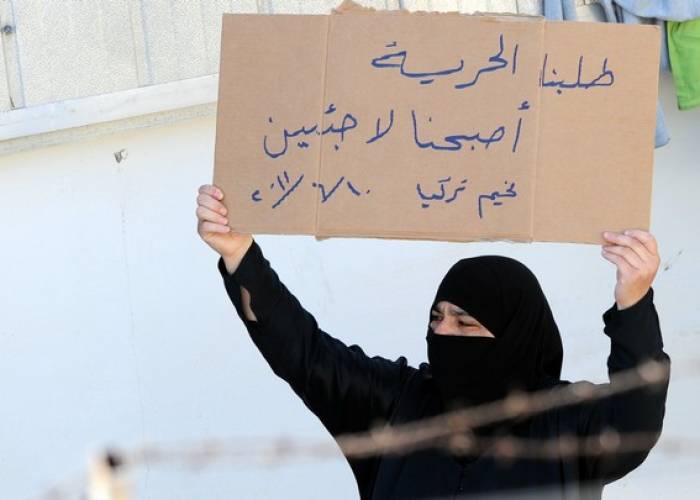 طلبنا الحرية
أصبحنا لاجئين
مخيم تركيا ٢٠١١/٠٦/١٠